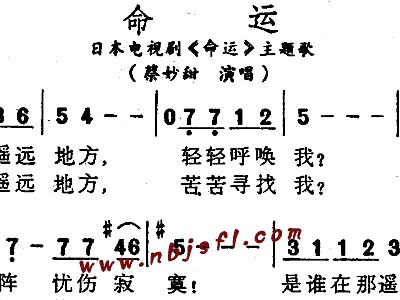 命 运
日本电视剧《命运》主题歌
(蔡妙甜 演唱)
36 | 5 4 - - | 0 7 7 1 2 | 5 - - - |
遥远 地方, 轻轻呼唤 我?
遥远 地方, 苦苦寻找 我?
7 - 7 7 #46 | #5 - - - | 3 1 1 2 3
阵 忧伤 寂 寞! 是谁在那遥
www.nbjsfl.com